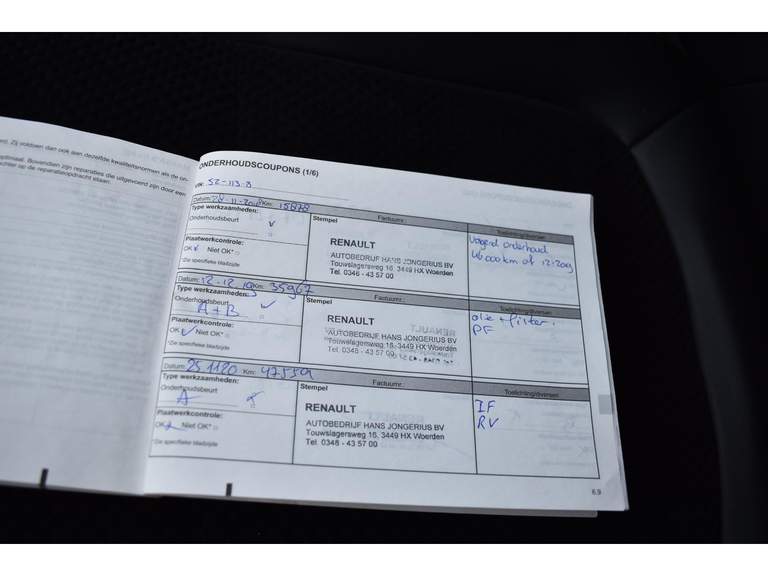 ed. Zij voldoen dan ook aan dezelfde kwaliteitsnormen als de on-
optimaal. Bovendien zijn reparaties die uitgevoerd zijn door een
achter op de reparatieopdracht staan.
ONDERHOUDSCOUPONS (1/6)
VIN: SZ-113-8
Datum: Km: 15878 Factuurnr.: Toelichting/diversen:
Type werkzaamheden:
Onderhoudsbeurt
Plaatwerkcontrole:
OK Niet OK*
*Zie specifieke bladzijde
Stempel
RENAULT
AUTOBEDRIJF HANS JONGERIUS BV
Touwslagersweg 16, 3449 HX Woerden
Tel. 0348 - 43 57 00
volgend onderhoud
46000km of 12-2019
Datum: 12-12-19 Km: 35967 Factuurnr.: Toelichting/diversen:
Type werkzaamheden:
Onderhoudsbeurt
A+B
Plaatwerkcontrole:
OK Niet OK*
*Zie specifieke bladzijde
Stempel
RENAULT
AUTOBEDRIJF HANS JONGERIUS BV
Touwslagersweg 16, 3449 HX Woerden
Tel. 0348 - 43 57 00
olie + filter
PF
Datum: 251120 Km: 47559 Factuurnr.: Toelichting/diversen:
Type werkzaamheden:
Onderhoudsbeurt
A
Plaatwerkcontrole:
OK Niet OK*
*Zie specifieke bladzijde
Stempel
RENAULT
AUTOBEDRIJF HANS JONGERIUS BV
Touwslagersweg 16, 3449 HX Woerden
Tel. 0348 - 43 57 00
IF
RV
6.9